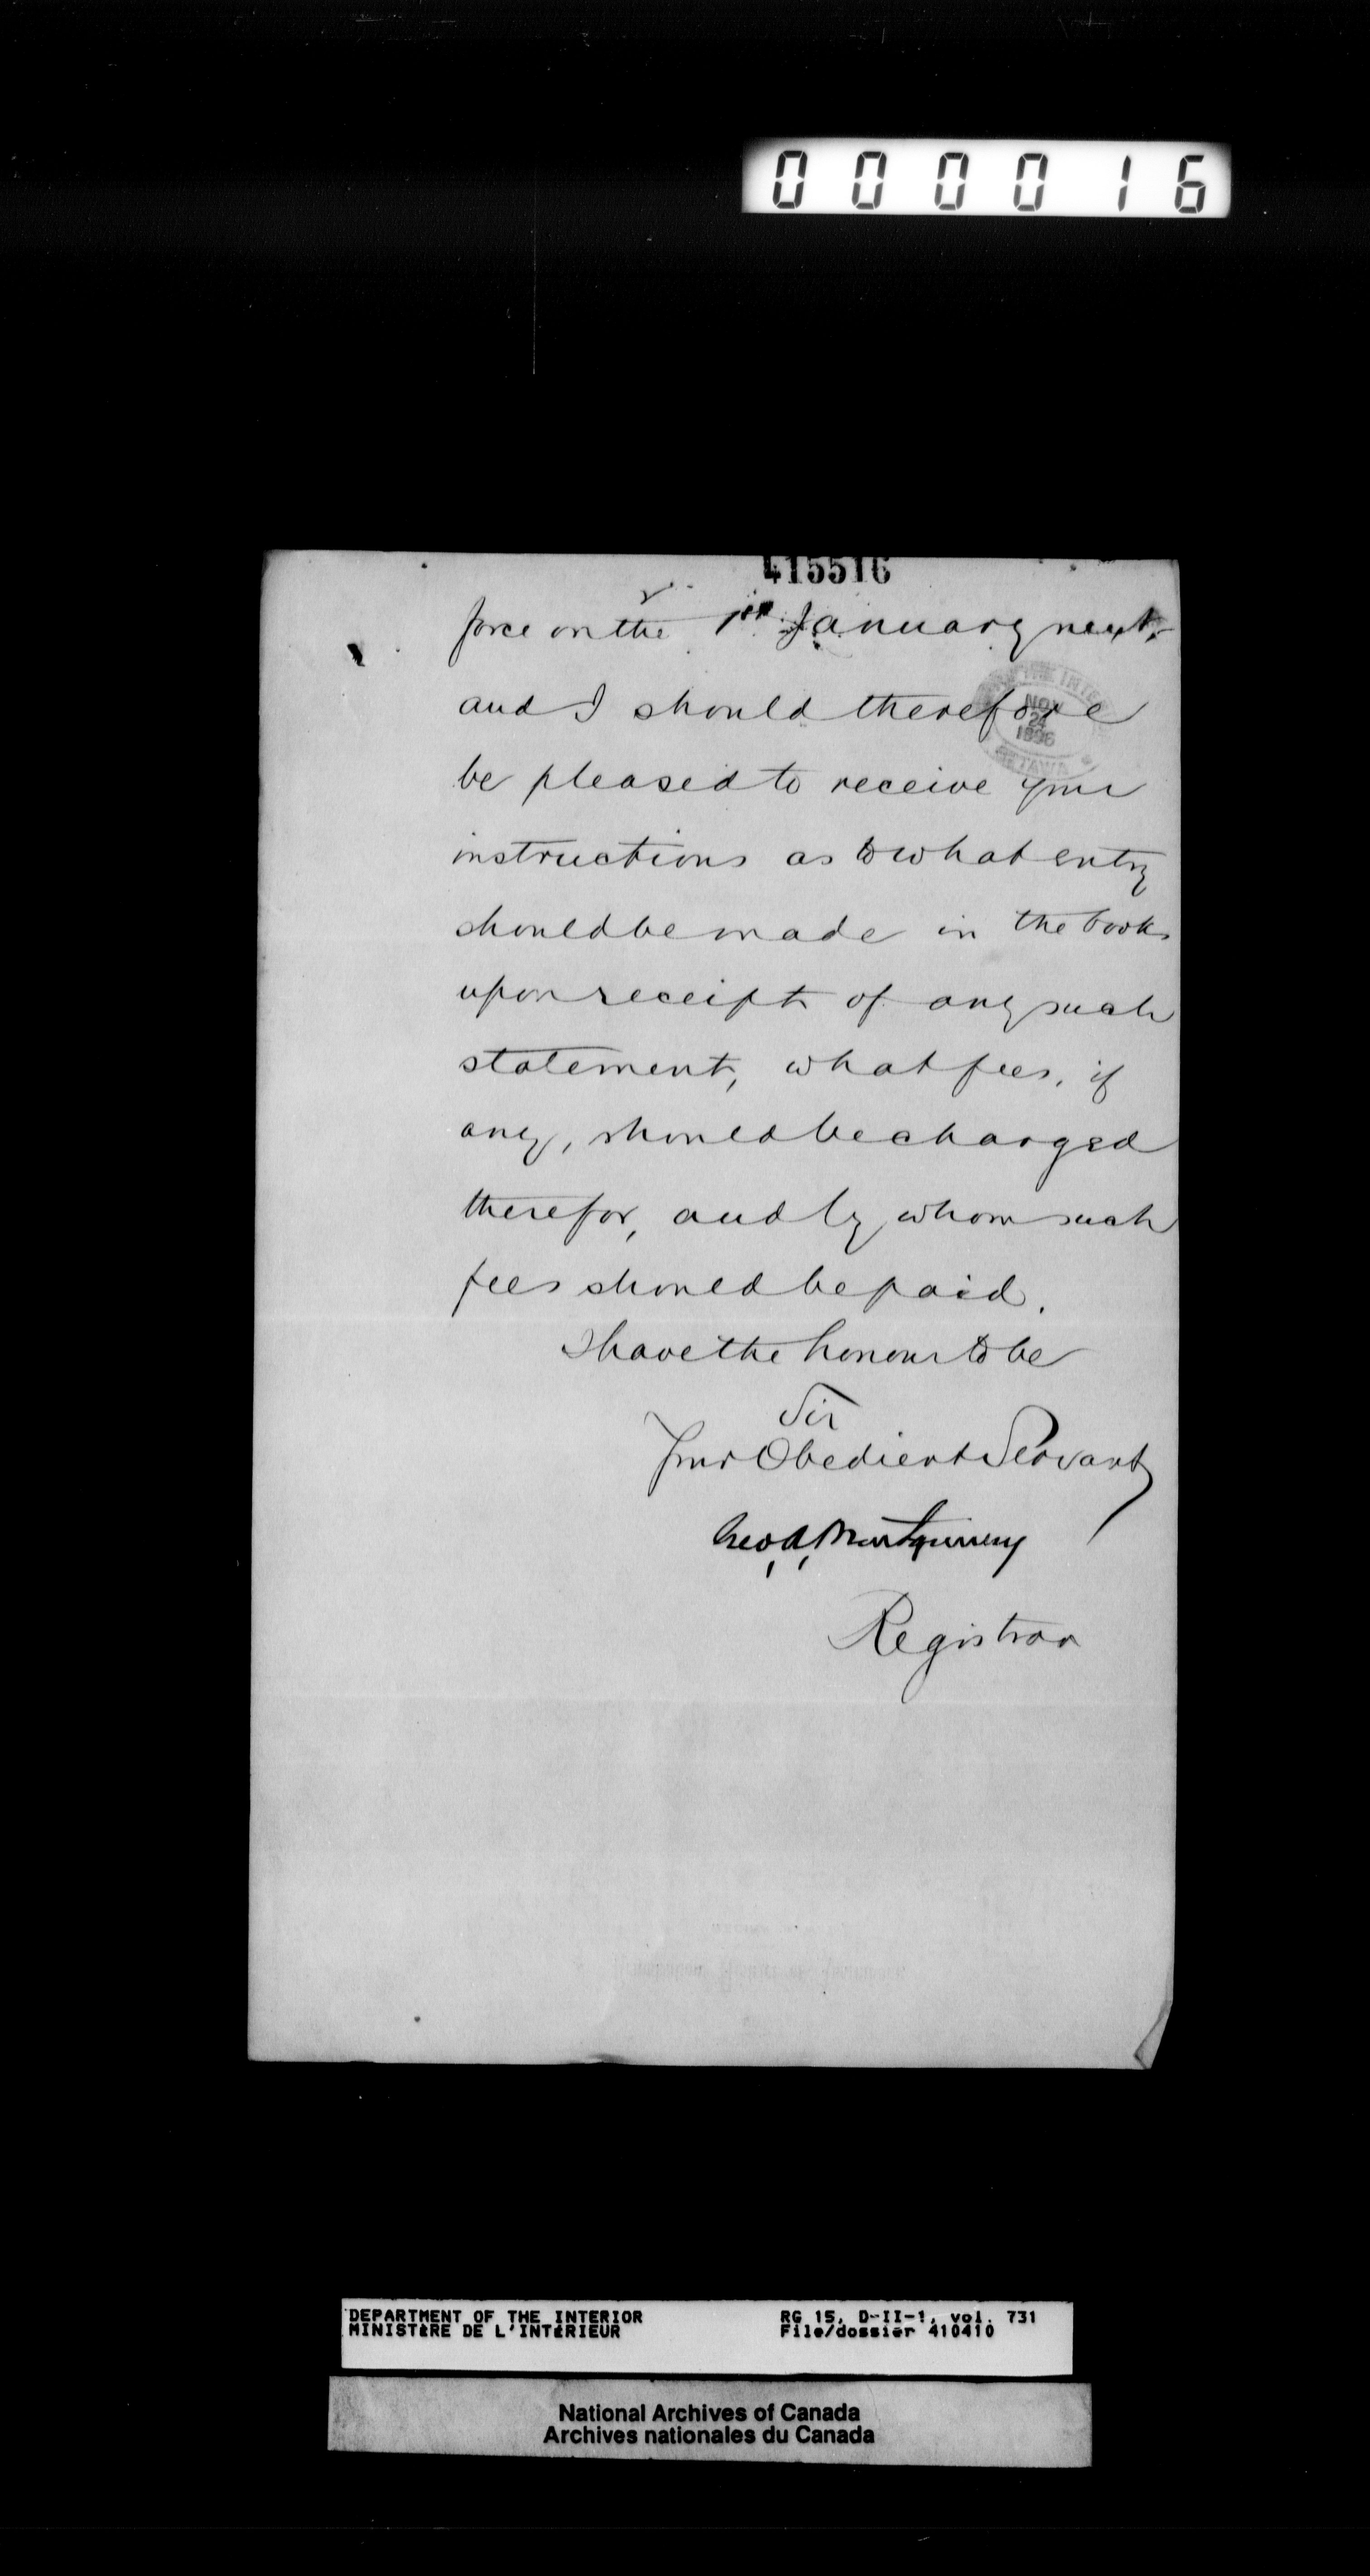 000016
415516
force on the 1st January next,
and I should therefore
be pleased to receive your
instructions as to what entry
should be made in the books
upon receipt of any such
statement, what fees, if
any, should be charged
therefor, and by whom such
fees should be paid.
I have the honour to be
Sir
Your Obedient Servant
Geo. A. Montgomery
Registrar
THE INTE
NOV
24
1896
OTTAWA
DEPARTMENT OF THE INTERIOR
MINISTÈRE DE L'INTÉRIEUR
RG 15, D-II-1, vol. 731
File/dossier 410410
National Archives of Canada
Archives nationales du Canada